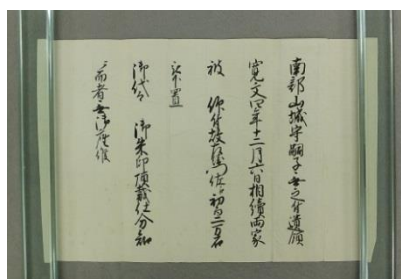 南部山城守嗣子無之付遺領
寛文四年十二月六日相續両家
被 仰付故 門佐 初 二万石
被下置
御代々 御朱印頂戴仕分知
ニ而者無御座候